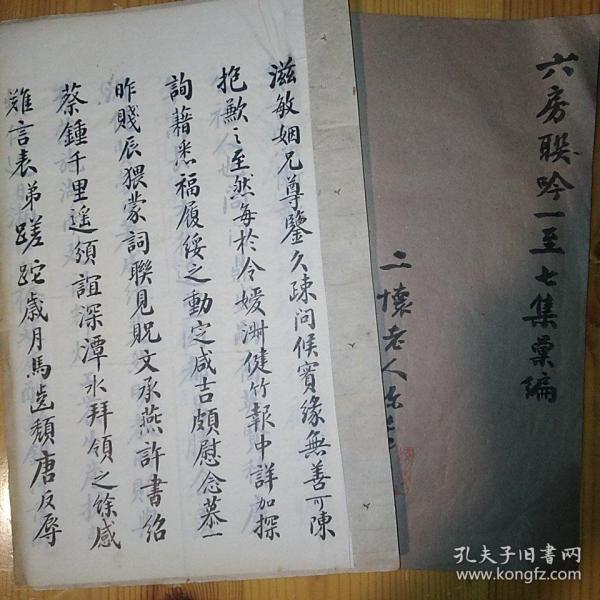 六房聯吟一至七集彙編
二懷老人
滋敏姻兄尊鑒久疎問候實緣無善可陳
抱歉之至然每於令嬡淑健竹報中詳加探
詢藉悉福履綏之動定咸吉頗慰念慕一
昨賤辰猥蒙詞聯見貺文承燕許書紹
蔡鍾千里遥頒誼深潭水拜領之餘感
難言表弟蹉跎歲月馬齒頹唐反辱
孔夫子旧书网
www.kongfz.com